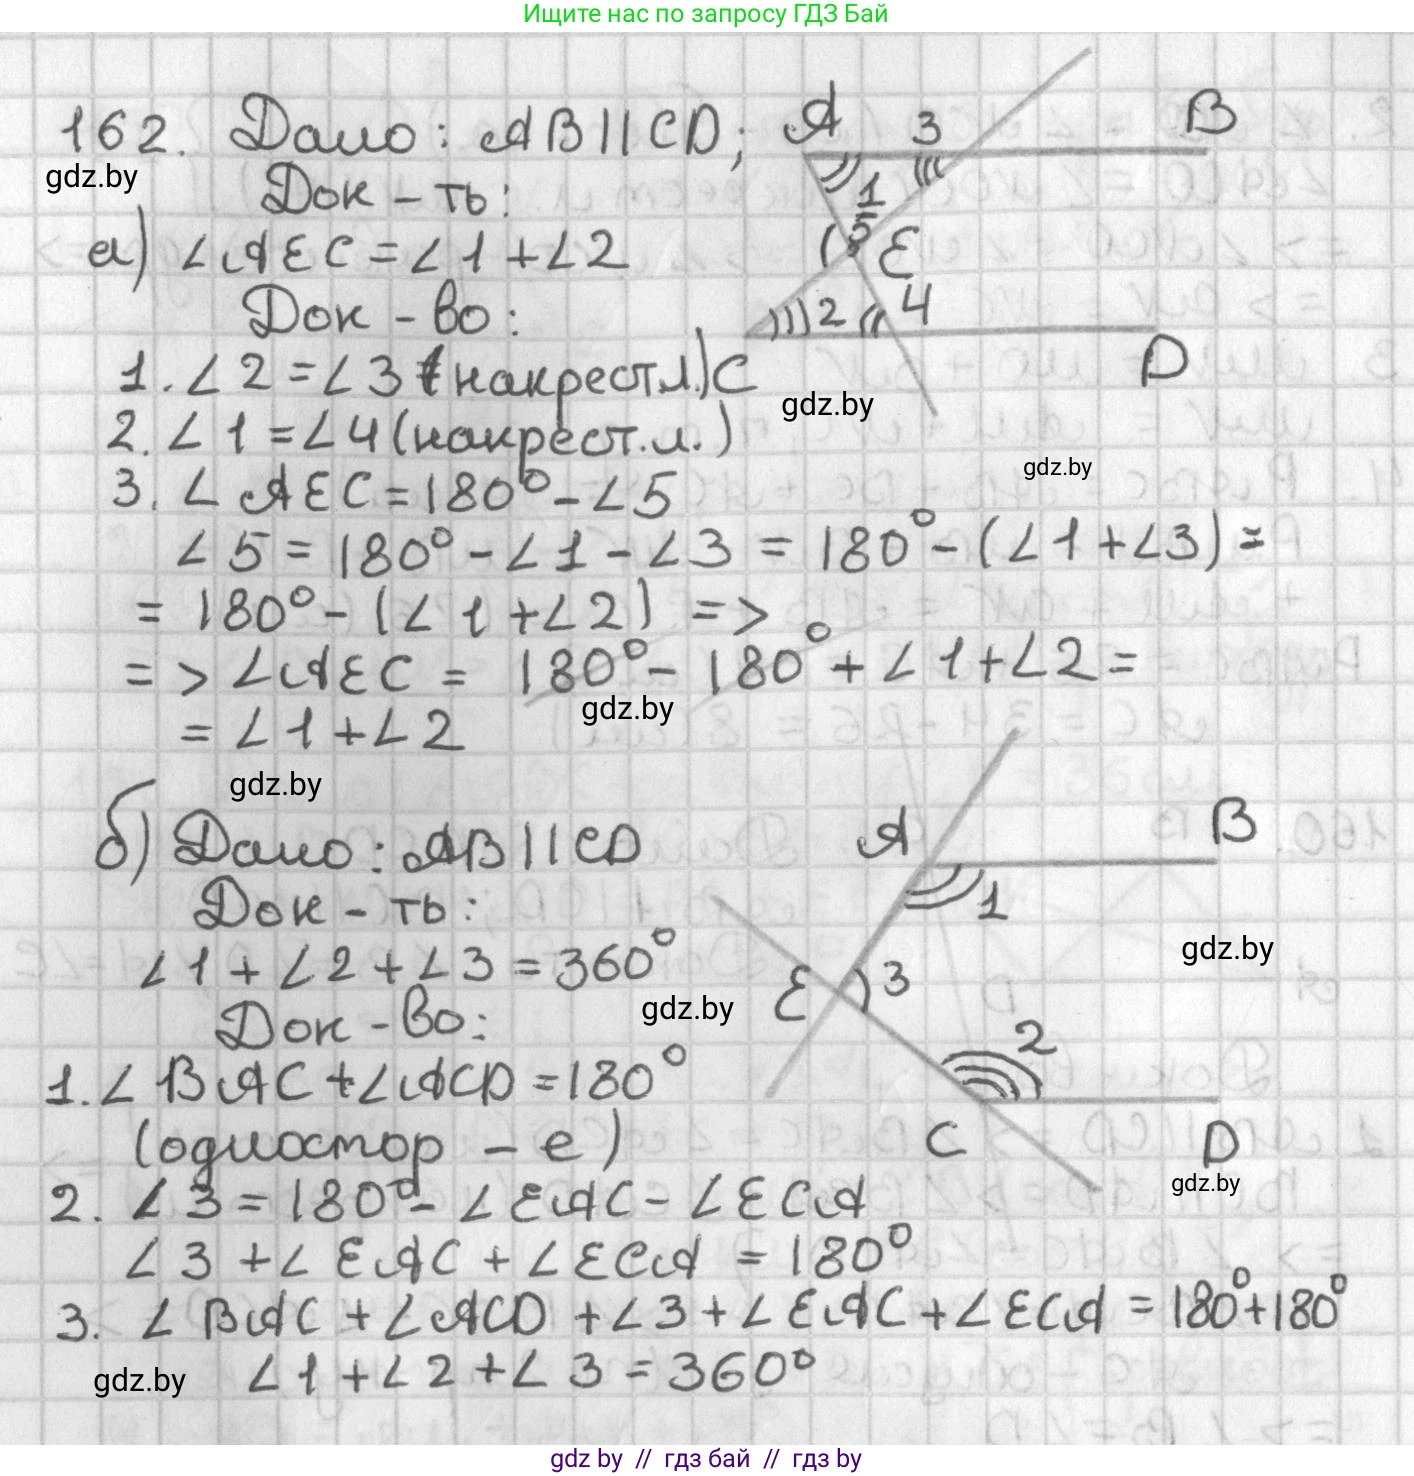 Ищите нас по запросу ГДЗ Бай
162. Дано: AB||CD;
gdz.by
Док-ть:
а) ∠AEC = ∠1 + ∠2
Док-во:
1. ∠2 = ∠3 (накрест л.)
2. ∠1 = ∠4 (накрест.л.)
3. ∠AEC = 180° - ∠5
∠5 = 180° - ∠1 - ∠3 = 180° - (∠1 + ∠3) =
= 180° - (∠1 + ∠2) =>
=> ∠AEC = 180° - 180° + ∠1 + ∠2 =
= ∠1 + ∠2
A 3 B
1
5 E
2 4
C D
gdz.by
gdz.by
gdz.by
gdz.by
б) Дано: AB||CD
Док-ть:
∠1 + ∠2 + ∠3 = 360°
Док-во:
1. ∠BAC + ∠ACD = 180°
(одностор-е)
2. ∠3 = 180° - ∠EAC - ∠ECA
∠3 + ∠EAC + ∠ECA = 180°
3. ∠BAC + ∠ACD + ∠3 + ∠EAC + ∠ECA = 180° + 180°
∠1 + ∠2 + ∠3 = 360°
A B
1
E 3
2
C D
gdz.by
gdz.by
gdz.by
gdz.by
gdz.by // гдз бай // гдз by